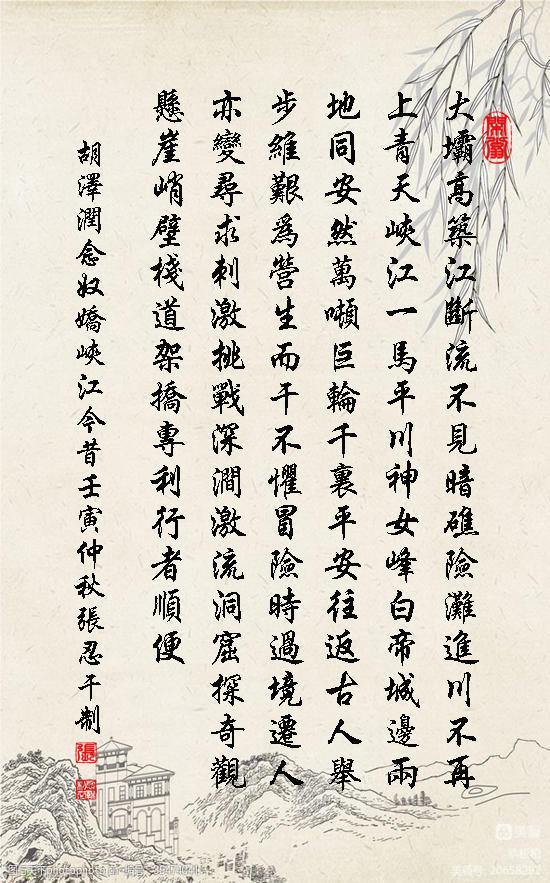 大壩高築江斷流不見暗礁險灘進川不再
上青天峽江一馬平川神女峰白帝城邊兩
地同安然萬噸巨輪千裏平安往返古人舉
步維艱爲營生而干不懼冒險時過境遷人
亦變尋求刺激挑戰深澗激流洞窟探奇觀
懸崖峭壁棧道架橋專利行者順便
胡澤潤念奴嬌峽江今昔壬寅仲秋張忍干製
張